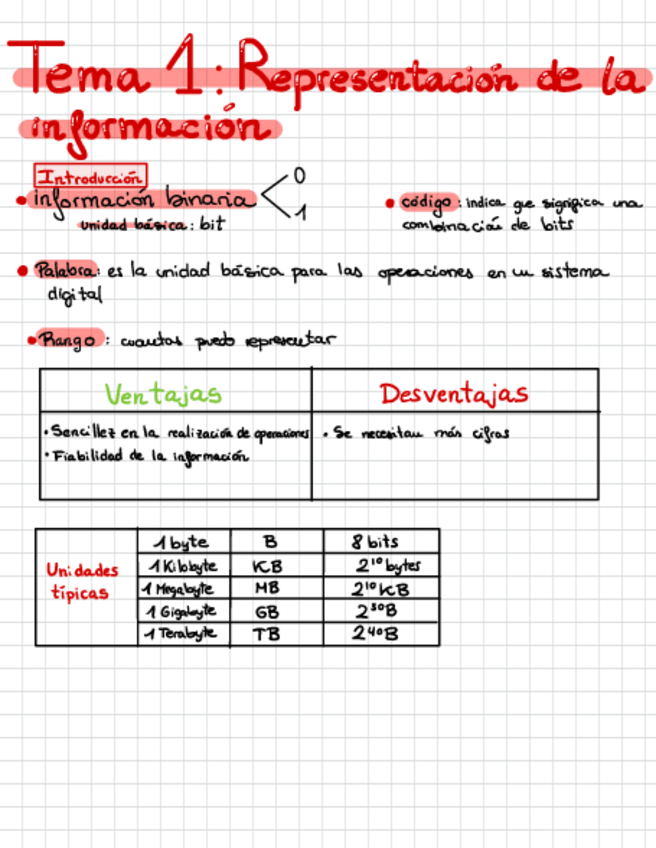 Tema 1: Representación de la
información
Introducción
• información binaria < 0 1
unidad básica: bit
• código: indica que significa una
combinación de bits
• Palabra: es la unidad básica para las operaciones en un sistema
digital
• Rango: cuantos puedo representar
Ventajas
Desventajas
• Sencillez en la realización de operaciones
• Fiabilidad de la información
• Se necesitan más cifras
Unidades
típicas
1 byte B 8 bits
1 Kilobyte KB 2¹⁰ bytes
1 Megabyte MB 2¹⁰ KB
1 Gigabyte GB 2³⁰B
1 Terabyte TB 2⁴⁰B